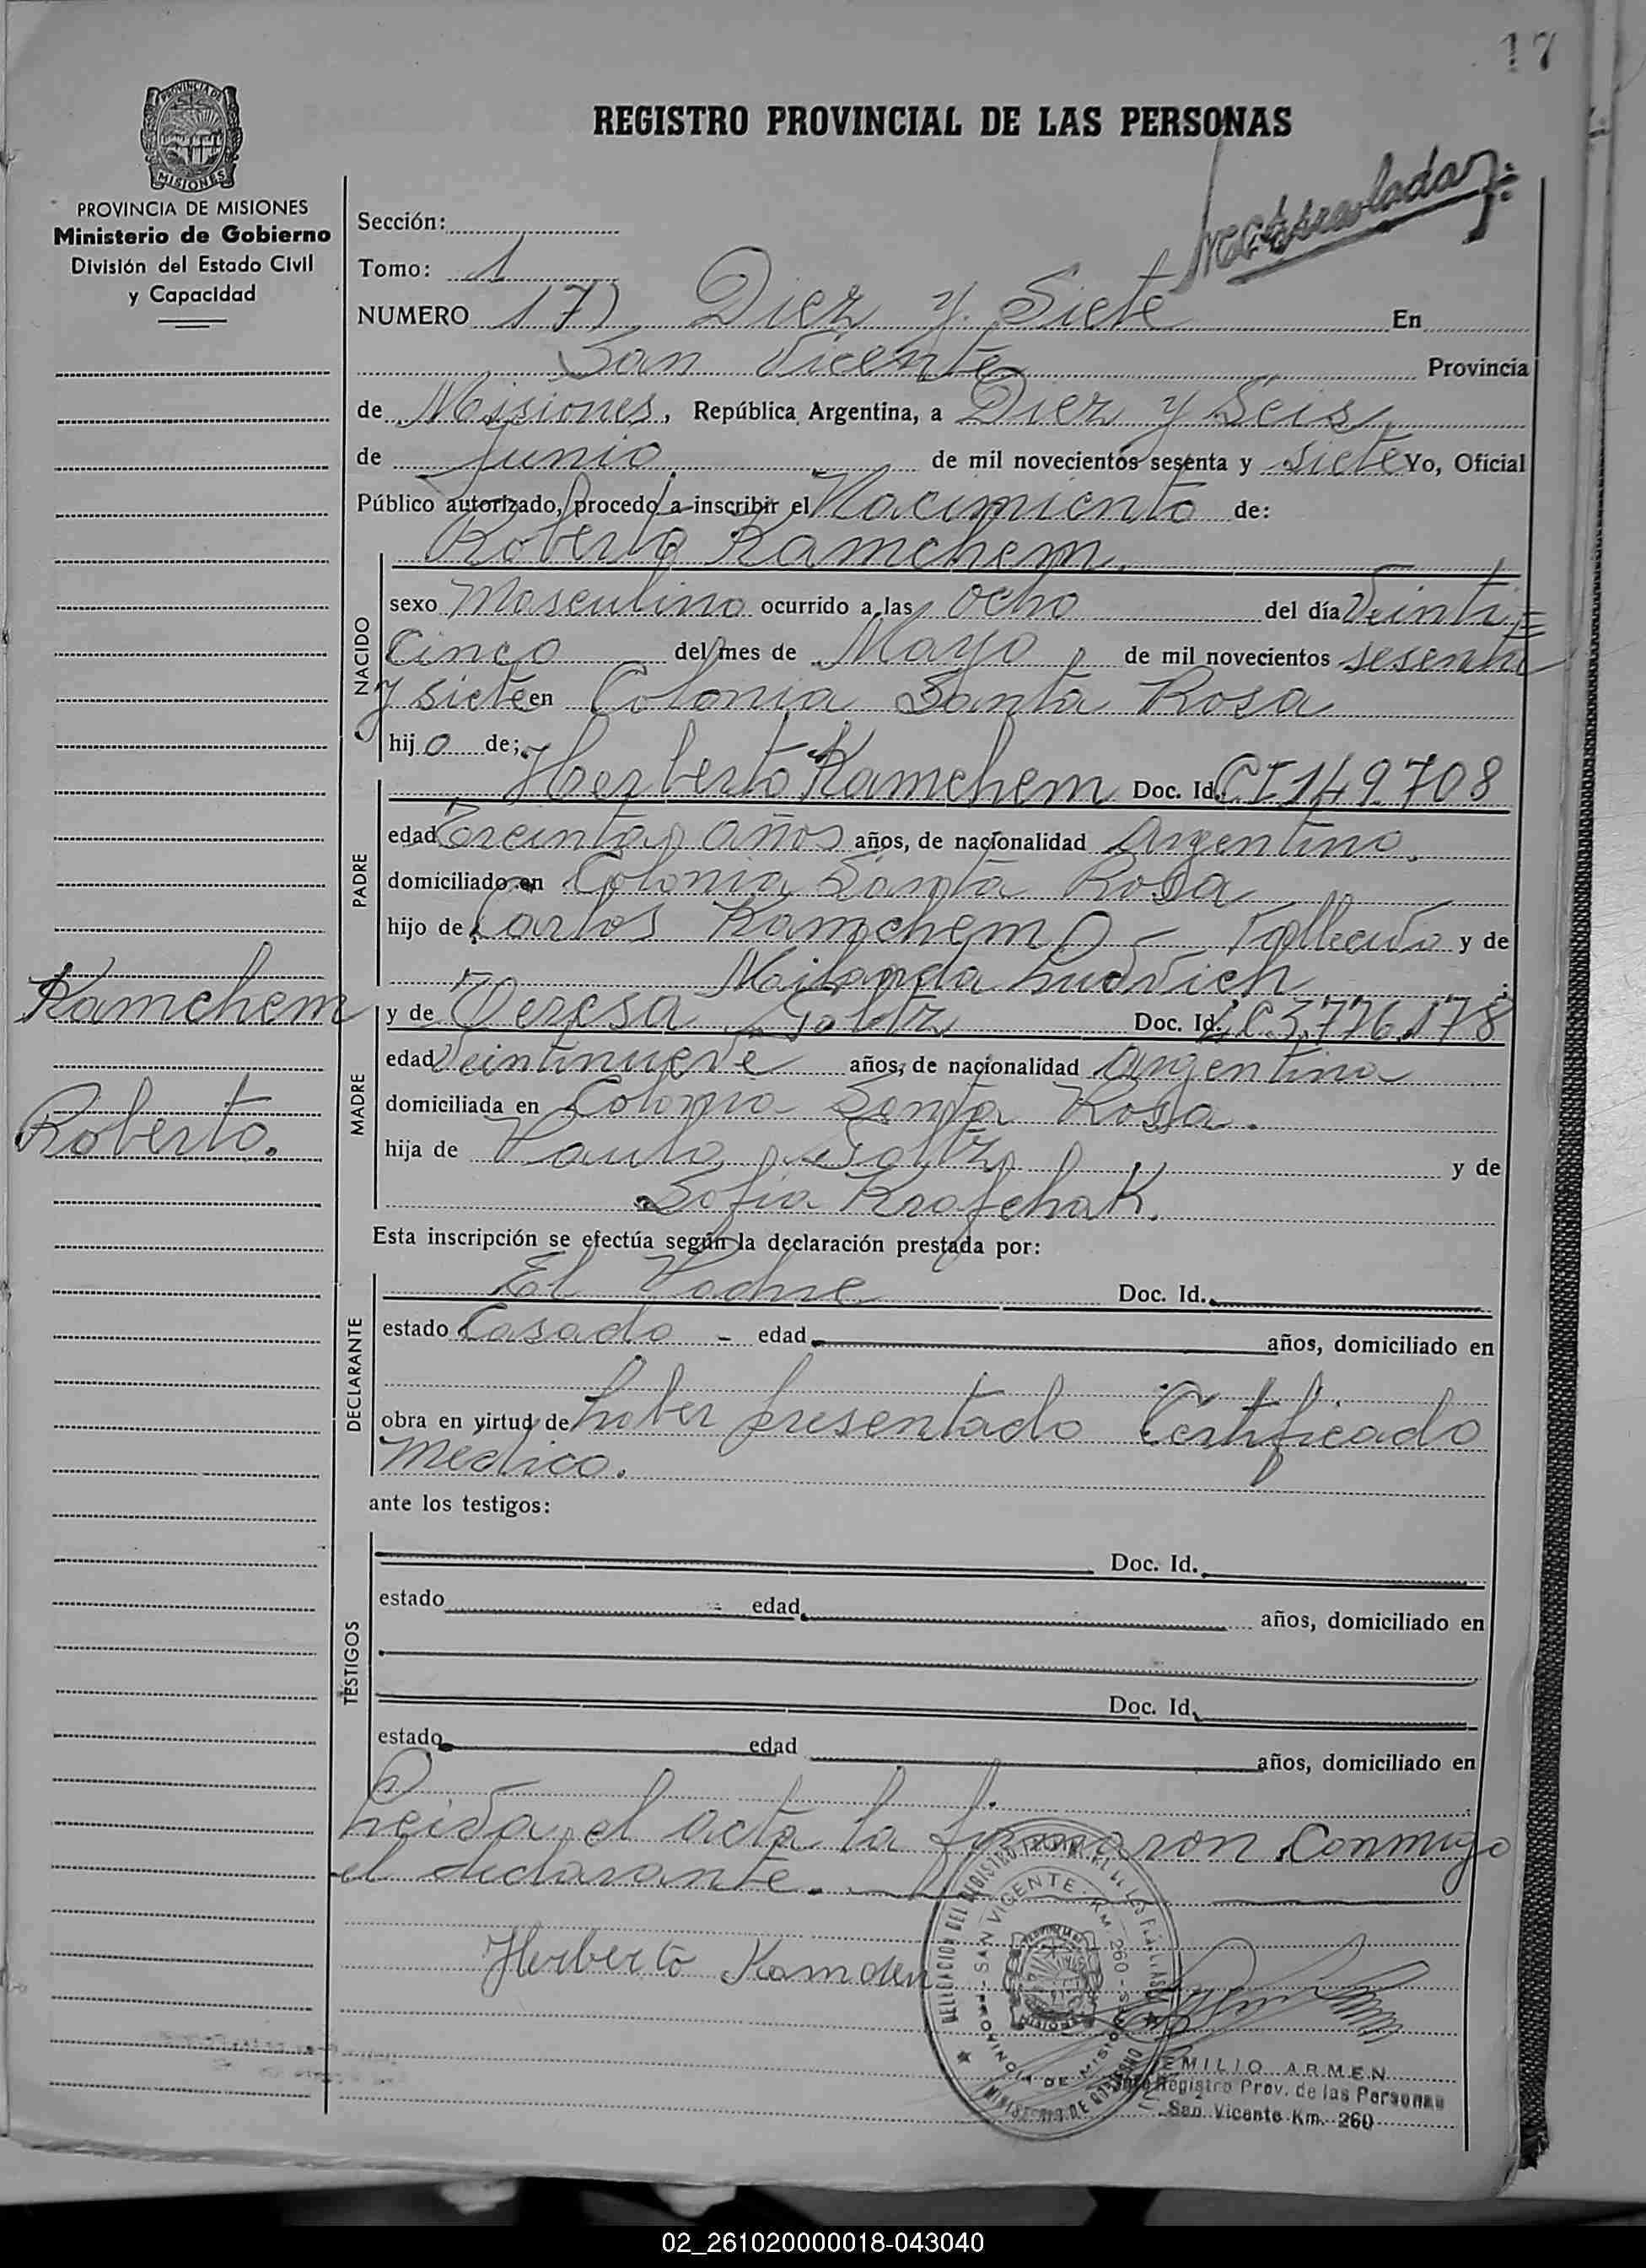 17
REGISTRO PROVINCIAL DE LAS PERSONAS
PROVINCIA DE
MISIONES
PROVINCIA DE MISIONES
Ministerio de Gobierno
División del Estado Civil
y Capacidad
Sección:
Tomo: 1
NUMERO 17) Diez y Siete En
San Vicente Provincia
de Misiones, República Argentina, a Diez y Seis
de junio de mil novecientos sesenta y siete Yo, Oficial
Público autorizado, procedo a inscribir el Nacimiento de:
Roberto Kamchem.
NACIDO
sexo Masculino ocurrido a las ocho del día Veinti=
Cinco del mes de Mayo de mil novecientos sesenta
y siete en Colonia Santa Rosa
hijo de;
PADRE
Herberto Kamchem Doc. Id. CI 149708
edad Treinta años años, de nacionalidad Argentino.
domiciliado en Colonia Santa Rosa
hijo de Carlos Kamchem - Fallecido y de
Ludvich
Kamchem
Roberto.
MADRE
y de Teresa Goltz Doc. Id. LC 3.776.178
edad Veintinueve años, de nacionalidad Argentina
domiciliada en Colonia Santa Rosa.
hija de Paulo Goltz y de
Sofia Krafchak.
Esta inscripción se efectúa según la declaración prestada por:
DECLARANTE
El Padre Doc. Id.
estado Casado - edad años, domiciliado en
obra en virtud de haber presentado Certificado
Medico.
ante los testigos:
TESTIGOS
Doc. Id.
estado edad años, domiciliado en
Doc. Id.
estado edad años, domiciliado en
Leida el acta la firmaron conmigo
el declarante.
Herberto Kamchen
SAN VICENTE KM 260
PROVINCIA DE MISIONES
MINISTERIO DE GOBIERNO
EMILIO ARMEN
Registro Prov. de las Personas
San Vicente Km. 260
02_261020000018-043040